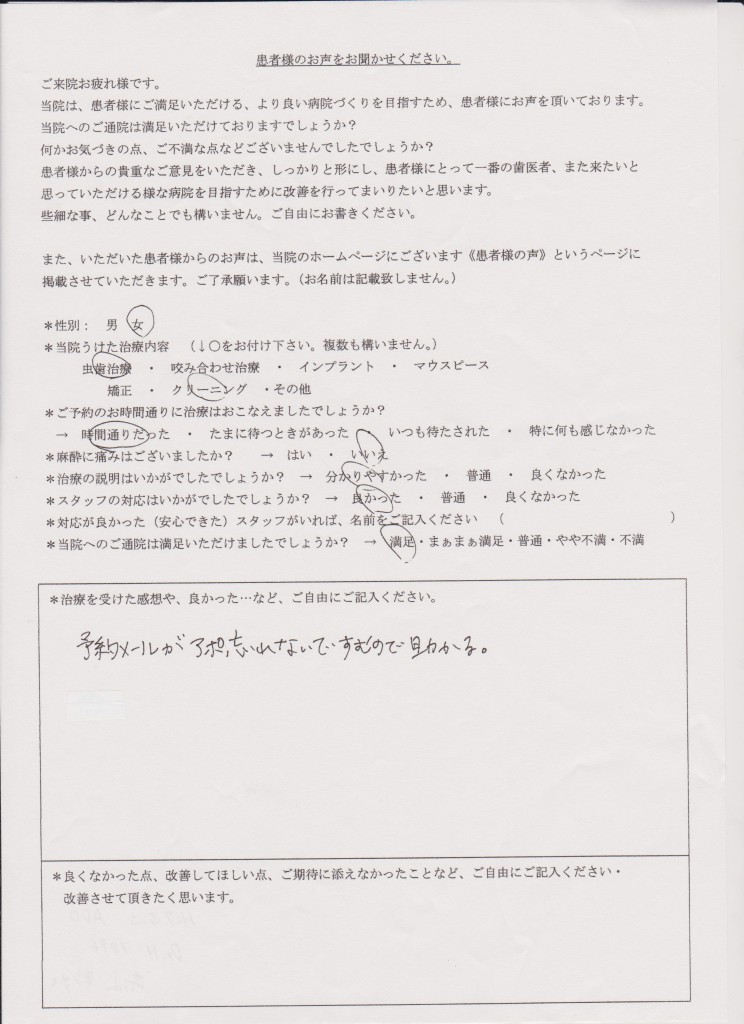 患者様のお声をお聞かせください。
ご来院お疲れ様です。
当院は、患者様にご満足いただける、より良い病院づくりを目指すため、患者様にお声を頂いております。
当院へのご通院は満足いただけておりますでしょうか？
何かお気づきの点、ご不満な点などございませんでしたでしょうか？
患者様からの貴重なご意見をいただき、しっかりと形にし、患者様にとって一番の歯医者、また来たいと
思っていただける様な病院を目指すために改善を行ってまいりたいと思います。
些細な事、どんなことでも構いません。ご自由にお書きください。
また、いただいた患者様からのお声は、当院のホームページにございます《患者様の声》というページに
掲載させていただきます。ご了承願います。（お名前は記載致しません。）
＊性別： 男 女
＊当院うけた治療内容 （↓〇をお付け下さい。複数も構いません。）
虫歯治療 ・ 咬み合わせ治療 ・ インプラント ・ マウスピース
矯正 ・ クリーニング ・その他
＊ご予約のお時間通りに治療はおこなえましたでしょうか？
→ 時間通りだった ・ たまに待つときがあった ・ いつも待たされた ・ 特に何も感じなかった
＊麻酔に痛みはございましたか？ → はい ・ いいえ
＊治療の説明はいかがでしたでしょうか？ → 分かりやすかった ・ 普通 ・ 良くなかった
＊スタッフの対応はいかがでしたでしょうか？ → 良かった ・ 普通 ・ 良くなかった
＊対応が良かった（安心できた）スタッフがいれば、名前をご記入ください （ ）
＊当院へのご通院は満足いただけましたでしょうか？ → 満足・まぁまぁ満足・普通・やや不満・不満
＊治療を受けた感想や、良かった…など、ご自由にご記入ください。
予約メールがアポ忘れないですむので助かる。
＊良くなかった点、改善してほしい点、ご期待に添えなかったことなど、ご自由にご記入ください・
改善させて頂きたく思います。